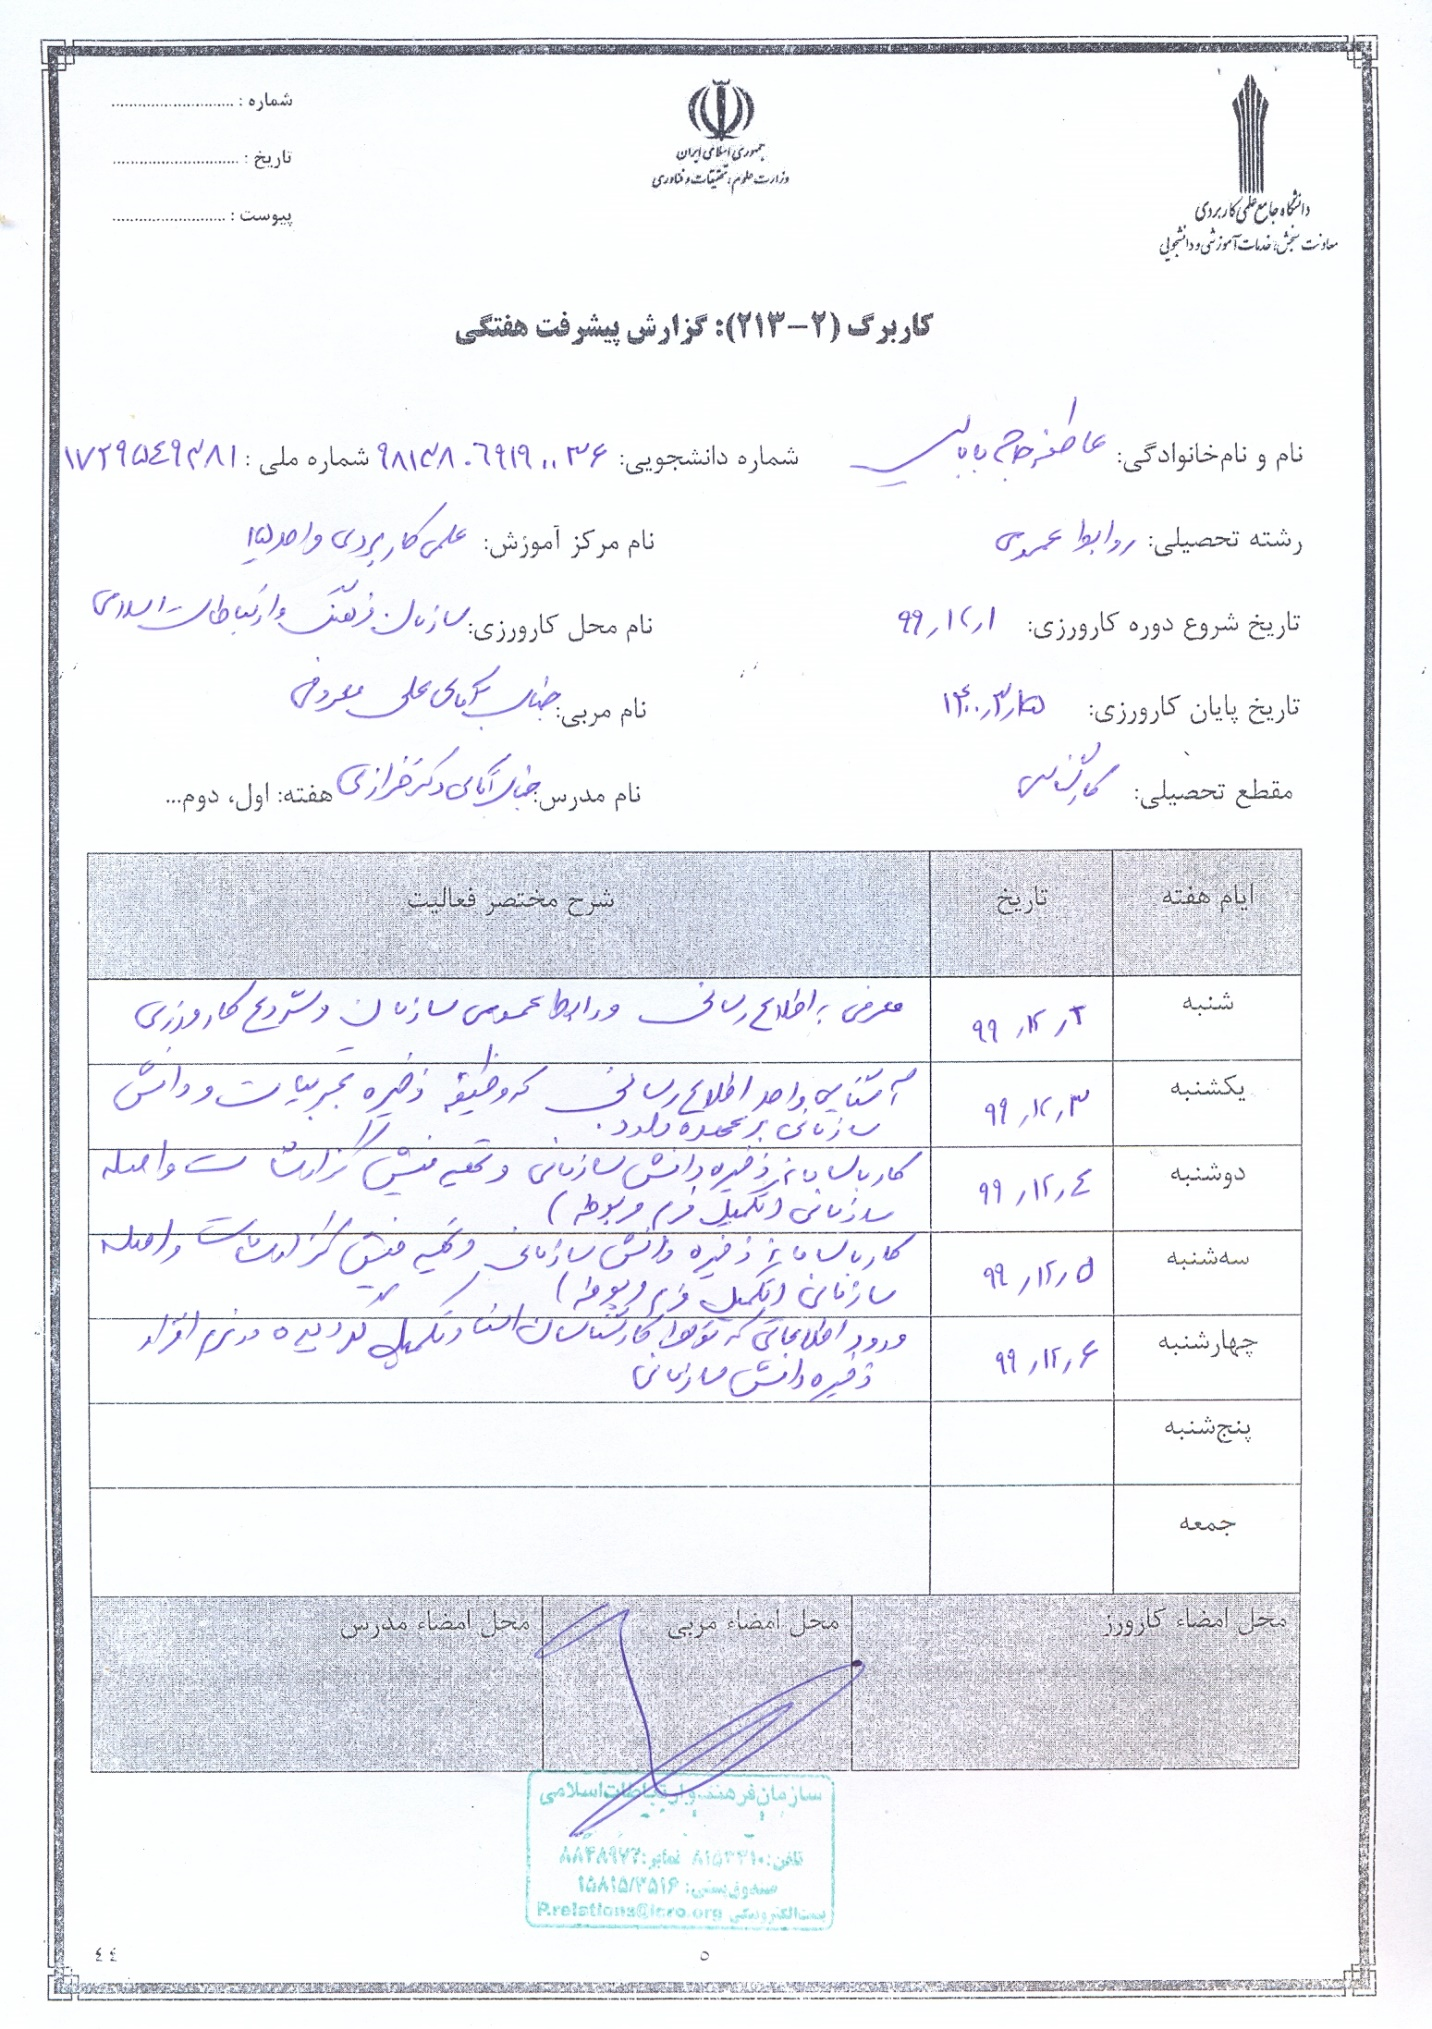 شماره : ............................
تاریخ : ............................
پیوست : ..........................
جمهوری اسلامی ایران
وزارت علوم، تحقیقات و فناوری
دانشگاه جامع علمی کاربردی
معاونت سنجش، خدمات آموزشی و دانشجویی
کاربرگ (۲-۲۱۳): گزارش پیشرفت هفتگی
نام و نام‌خانوادگی: عاطفه حاجی بابائی شماره دانشجویی: ۹۸۱۳۸۰۶۹۱۹۰۰۳۶ شماره ملی : ۱۷۲۹۵۴۹۳۸۱
رشته تحصیلی: روابط عمومی نام مرکز آموزش: علمی کاربردی واحد ۱۵
تاریخ شروع دوره کارورزی: ۹۹,۱۲,۱ نام محل کارورزی: سازمان فرهنگ و ارتباطات اسلامی
تاریخ پایان کارورزی: ۱۴۰۰,۳,۲۵ نام مربی: جناب آقای علی معروفی
مقطع تحصیلی: کارشناسی نام مدرس: جناب آقای دکتر خرازی هفته: اول، دوم...
ایام هفته تاریخ شرح مختصر فعالیت
شنبه ۹۹,۱۲,۲ معرفی به اطلاع رسانی و روابط عمومی سازمان و شروع کارورزی
یکشنبه ۹۹,۱۲,۳ آشنایی با واحد اطلاع رسانی که وظیفه ذخیره تجربیات و دانش
سازمانی بر عهده دارد.
دوشنبه ۹۹,۱۲,۴ کار با سامانه ذخیره دانش سازمانی و تهیه فیش گزارشات واصله
سازمانی (تکمیل فرم مربوطه)
سه‌شنبه ۹۹,۱۲,۵ کار با سامانه ذخیره دانش سازمانی و تهیه فیش گزارشات واصله
سازمانی (تکمیل فرم مربوطه)
چهارشنبه ۹۹,۱۲,۶ ورود اطلاعاتی که توسط کارشناسان تکمیل گردیده در نرم افزار
ذخیره دانش سازمانی
پنج‌شنبه
جمعه
محل امضاء کارورز محل امضاء مربی محل امضاء مدرس
سازمان فرهنگ و ارتباطات اسلامی
تلفن: نمابر:
صندوق پستی: ۱۵۸۱۵/۳۵۱۶
پست الکترونیکی P.relations@icro.org
۵
٤٤